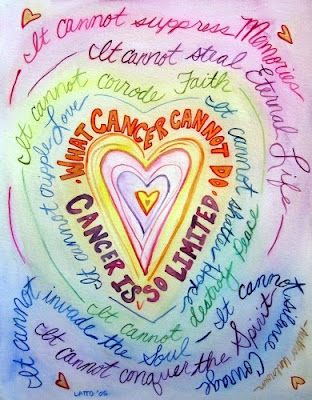 WHAT CANCER CANNOT DO
CANCER IS SO LIMITED
It cannot cripple Love
It cannot shatter Hope
It cannot corrode Faith
It cannot destroy Peace
It cannot suppress Memories
It cannot silence Courage
It cannot invade the Soul
It cannot steal Eternal Life
It cannot conquer the Spirit
Author Unknown
LATTO '06